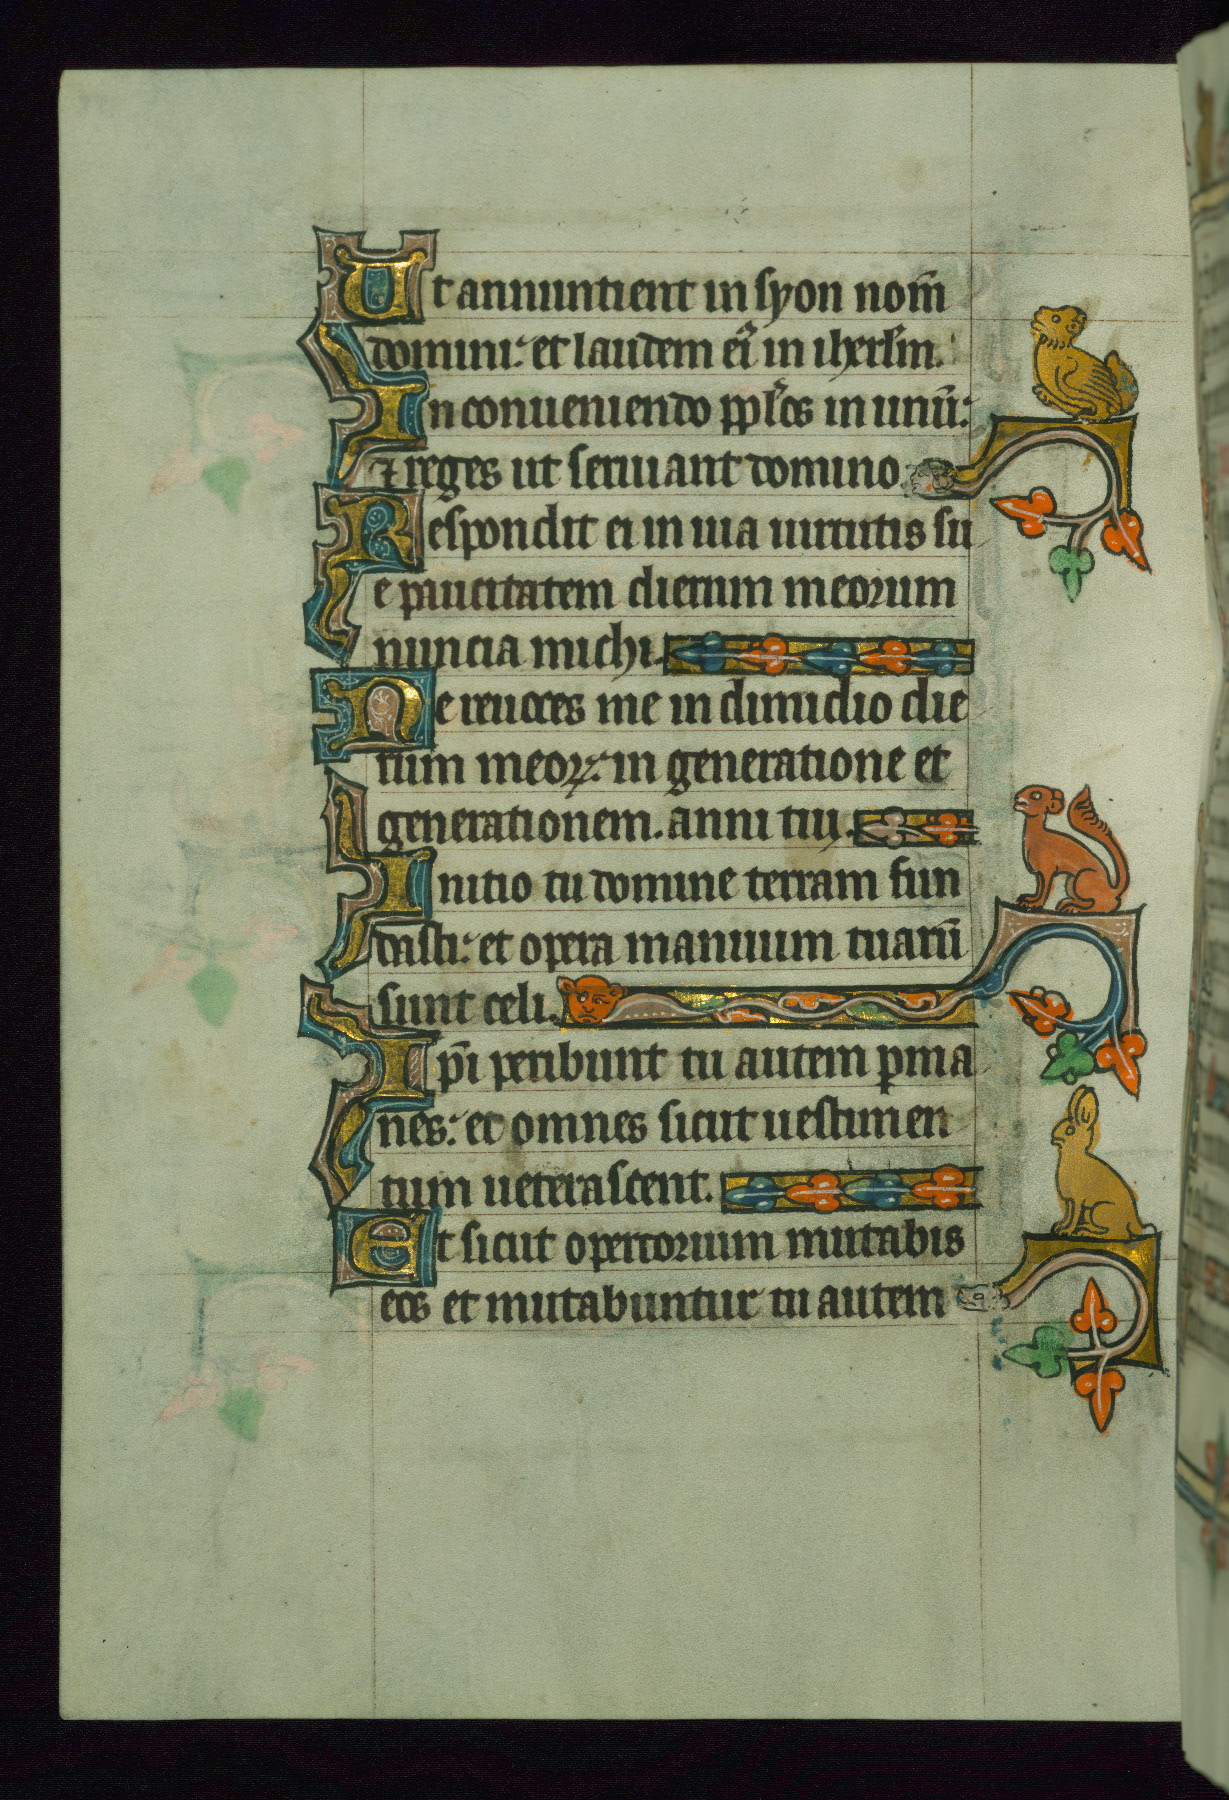 Ut annuntient in syon nom̄
domini: et laudem ei᷒ in iherl̄m.
In conueniendo pplōs in unū:
⁊ reges ut seruiant domino.
Respondit ei in uia uirtutis su
e paucitatem dierum meorum
nuncia michi.
Ne reuoces me in dimidio die
rum meoꝝ: in generatione et
generationem. anni tui.
Initio tu domine terram fun
dasti: et opera manuum tuarū
sunt celi.
Ip̄i peribunt tu autem ꝑma
nes: et omnes sicut uestimen
tum ueterascent.
Et sicut opertorium mutabis
eos et mutabuntur tu autem